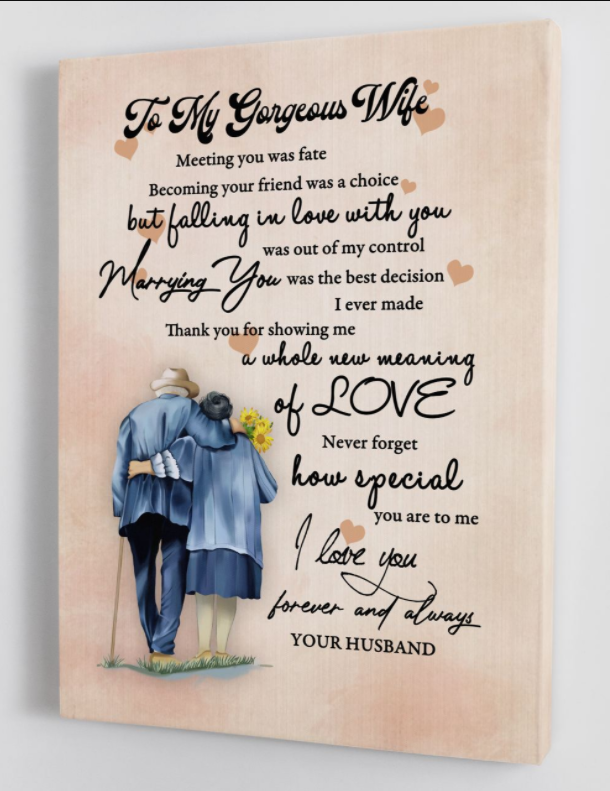 To My Gorgeous Wife
Meeting you was fate
Becoming your friend was a choice
but falling in love with you
was out of my control
Marrying You was the best decision
I ever made
Thank you for showing me
a whole new meaning
of LOVE
Never forget
how special
you are to me
I love you
forever and always
YOUR HUSBAND